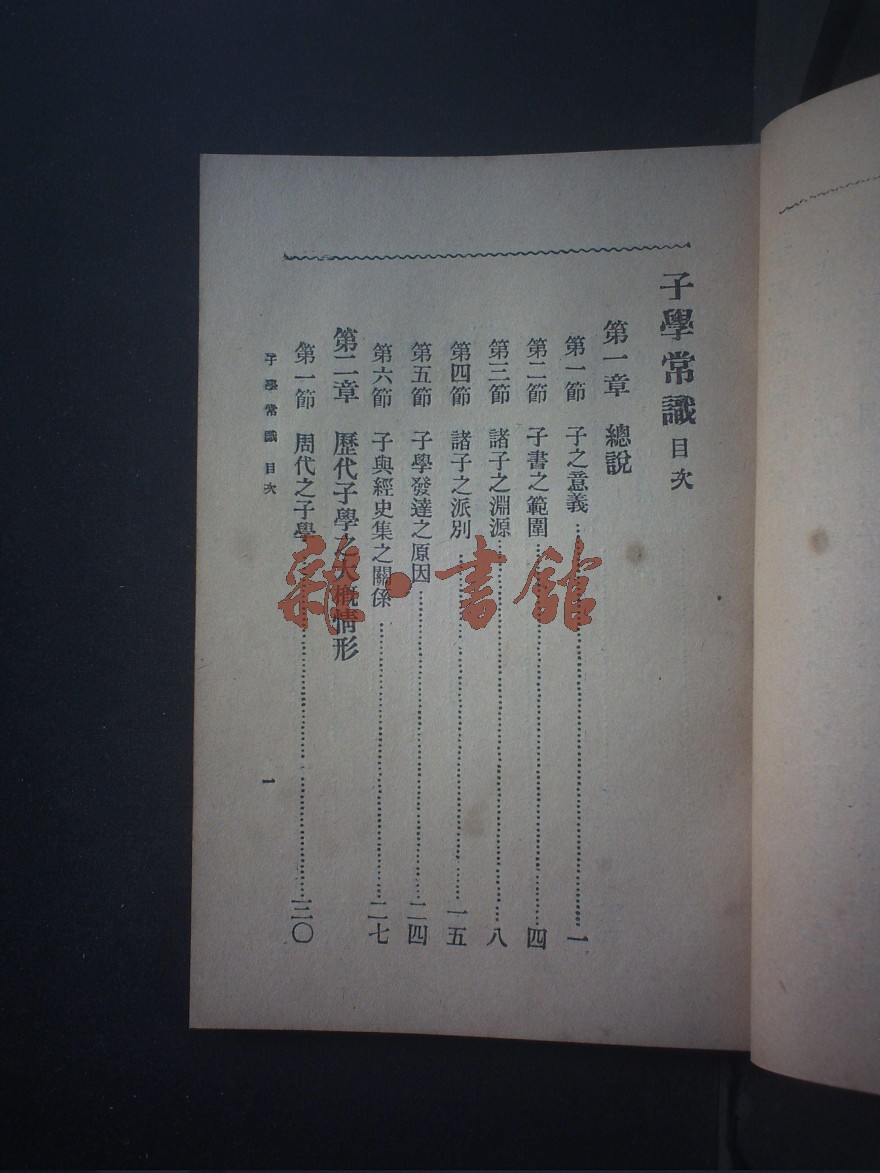 子學常識目次
第一章　總說
第一節　子之意義……一
第二節　子書之範圍……四
第三節　諸子之淵源……八
第四節　諸子之派別……一五
第五節　子學發達之原因……二四
第六節　子與經史集之關係……二七
第二章　歷代子學之大概情形
第一節　周代之子學……三〇
子學常識　目次
一
雜·書館